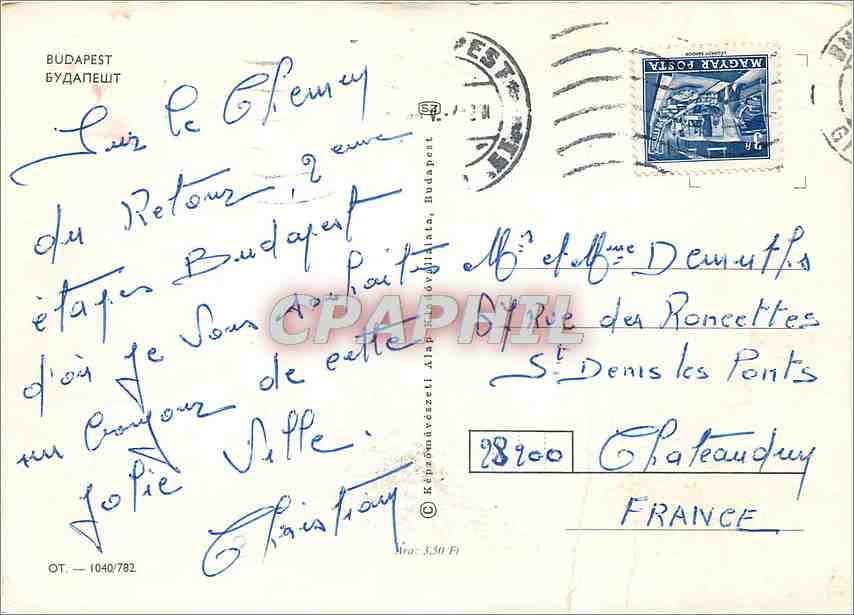 BUDAPEST
БУДАПЕШТ
Sur le Chemin
du Retour, 2 eme
étapes Budapest
d'où je vous souhaites
un bonjour de cette
jolie Ville.
Christian
OT. — 1040/782.
© Képzőművészeti Alap Kiadóvállalata, Budapest
Ára: 3,50 Ft
MAGYAR POSTA
3 Ft
CPAPHIL
Mr et Mme Demuths
67 Rue des Roncettes
St Denis les Ponts
28200 Chateaudun
FRANCE